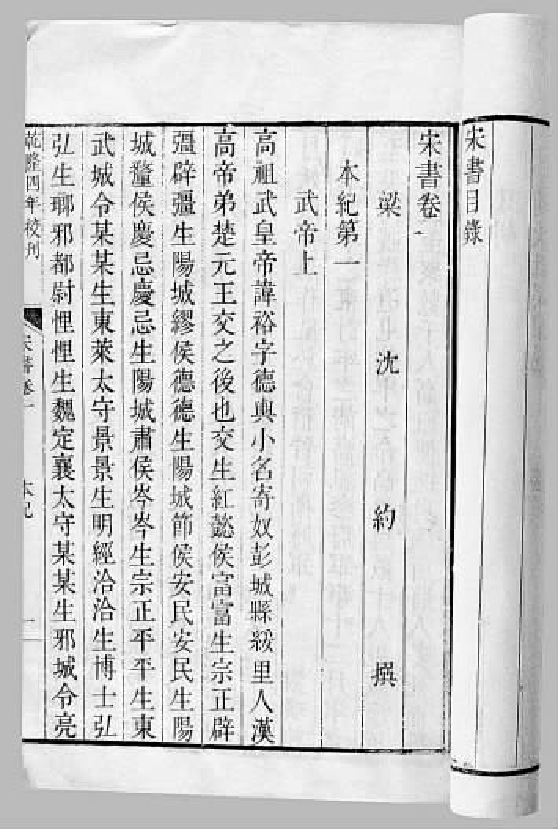 宋書目錄
宋書卷一
梁 沈 約 撰
本紀第一
武帝上
高祖武皇帝諱裕字德輿小名寄奴彭城縣綏里人漢
高帝弟楚元王交之後也交生紅懿侯富富生宗正辟
彊辟彊生陽城繆侯德德生陽城節侯安民安民生陽
城釐侯慶忌慶忌生陽城肅侯岑岑生宗正平平生東
武城令某某生東萊太守景景生明經洽洽生博士弘
弘生瑯邪都尉悝悝生魏定襄太守某某生邪城令亮
乾隆四年校刊
宋書卷一 本紀 一